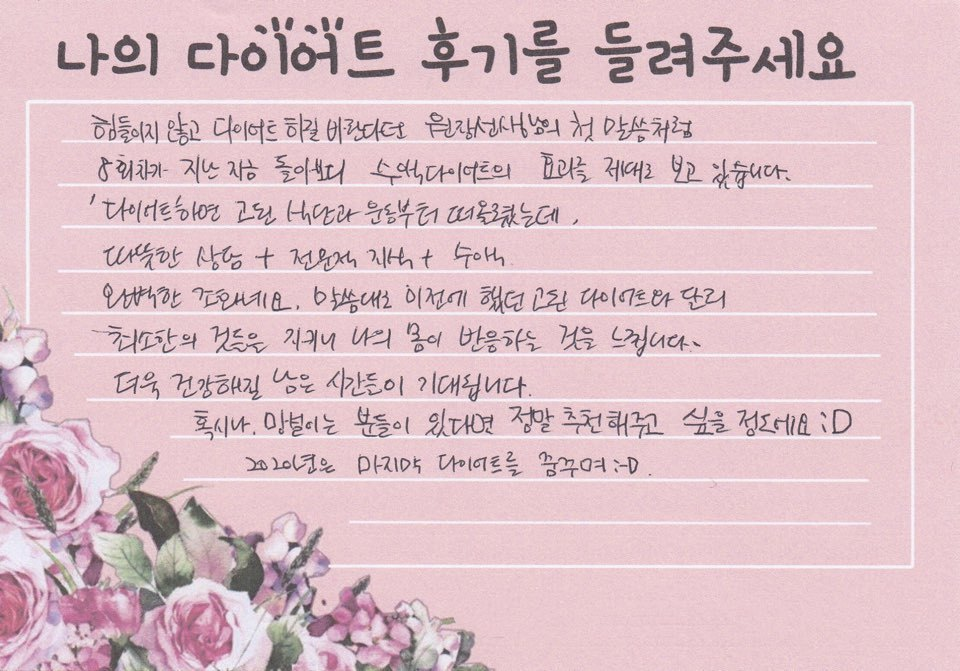 나의 다이어트 후기를 들려주세요
힘들이지 않고 다이어트 하길 바란다던 원장선생님의 첫 말씀처럼
8회차가 지난 지금 돌아보니 수액다이어트의 효과를 제대로 보고 있습니다.
'다이어트하면 고된 식단과 운동부터 떠올렸는데,
따뜻한 상담 + 전문적 지식 + 수액
완벽한 조화네요. 말씀대로 이전에 했던 고된 다이어트와 달리
최소한의 것들을 지키니 나의 몸이 반응하는 것을 느낍니다.
더욱 건강해질 남은 시간들이 기대됩니다.
혹시나, 망설이는 분들이 있다면 정말 추천해주고 싶을 정도에요 :D
2020년은 마지막 다이어트를 꿈꾸며 :-D.